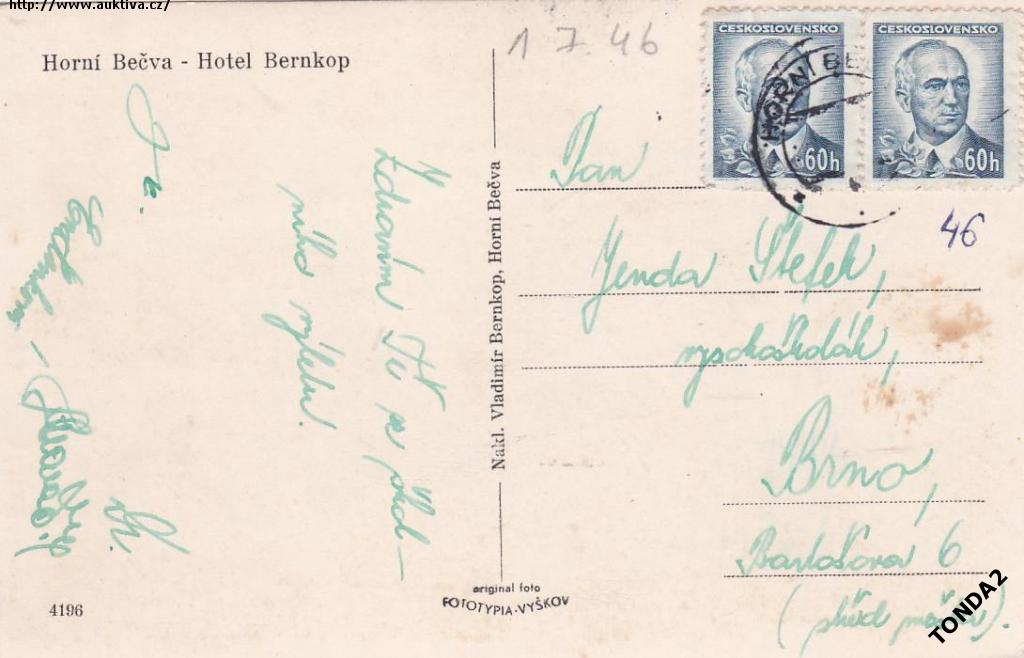 http://www.auktiva.cz/
Horní Bečva - Hotel Bernkop
1 7. 46
ČESKOSLOVENSKO
60h
ČESKOSLOVENSKO
60h
HORNÍ BE
46
Zdravím Tě ze škol-
ního výletu.
Nakl. Vladimír Bernkop, Horní Bečva
Pan
Jenda Štefek,
vysokoškolák,
Brno,
Bartošova 6
4196
original foto
FOTOTYPIA-VYŠKOV
TONDA2